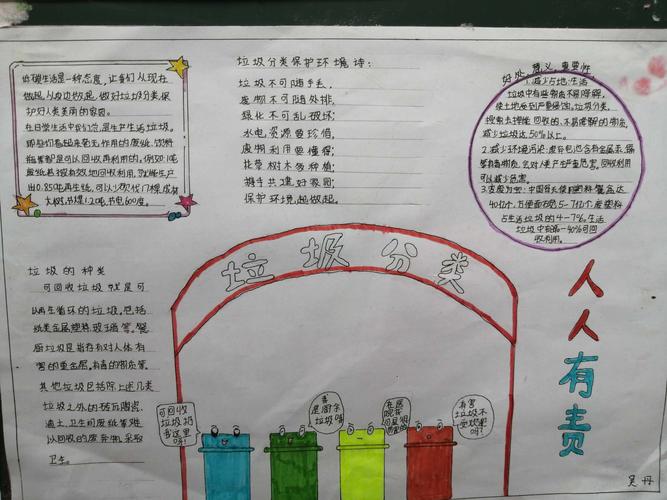 低碳生活是一种态度,让我们从现在
做起,从身边做起,做好垃圾分类,保
护好人类美丽的家园。
在日常生活中我们总是生产生活垃圾。
那些们看起来毫无作用的废纸、饮料
瓶等都是可以回收再利用的,例如:1吨
废纸若被有效地回收利用,就能生产
出0.85吨再生纸,可以少砍伐17棵成材
大树,节煤1.2吨,节电600度。
垃圾分类保护环境诗:
垃圾不可随手丢,
废物不可随处排,
绿化不可乱破坏;
水电资源要珍惜,
废物利用要懂得;
花草树木多种植;
携手共建好家园;
保护环境,起做起。
好处、意义、重要性
1.减少占地:生活
垃圾中有些物质不易降解,
使土地受到严重侵蚀,垃圾分类,
去掉能回收的、不易降解的物质,
减少垃圾达50%以上。
2.减少环境污染:废弃电池含有金属汞、镉
等有毒物质,会对人类产生严重危害。回收利用
可以减少危害。
3.变废为宝:中国每天使用塑料餐盒达
40亿个,方便面碗5-7亿个,废塑料
占生活垃圾的4-7%。生活
垃圾中有30-40%可回
收利用。
垃圾的种类
可回收垃圾就是可
以再生循环的垃圾,包括
纸类金属塑料,玻璃等,
垃圾是指存有对人体有
害的重金属,有毒的物质等
其他垃圾包括除上述几类
垃圾之外的砖瓦陶瓷、
渣土,卫生间废纸等难
以回收的废弃物,采取
卫生
垃圾分类
可回收
垃圾扔
我这里
呀!
我
是厨余
垃圾呀
有害
垃圾不
要
呀!
人人有责
吴丹